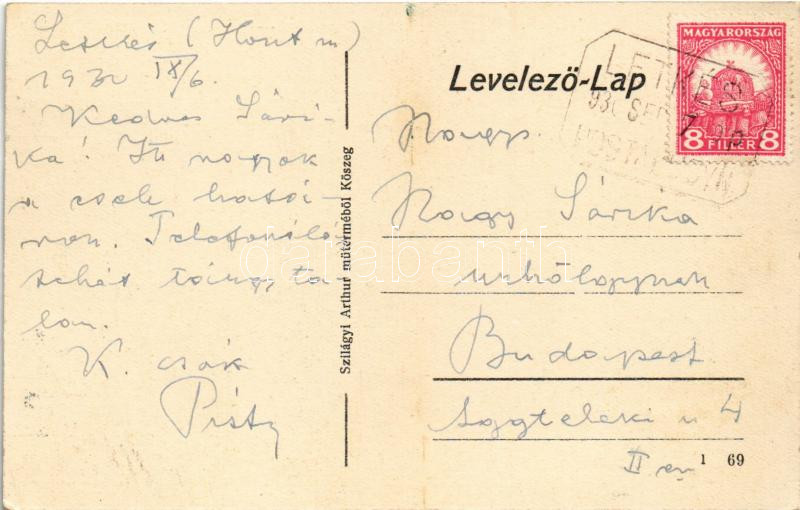 Letkés (Hont m)
1930 IX/6.
Kedves Sári-
ka! Itt vagyok
a cseh hatá-
ron. Telefonálo
tehát tárgyta-
lan.
K. csók
Pista
Szilágyi Arthur műterméből Kőszeg
Levelező-Lap
MAGYARORSZÁG
8 FILLÉR 8
LETKÉS
930 SEP 7
POSTAÜGYN
Nagys.
Nagy Sárika
urhölgynek
Budapest
Aggteleki u 4
II em
1 69
darabanth